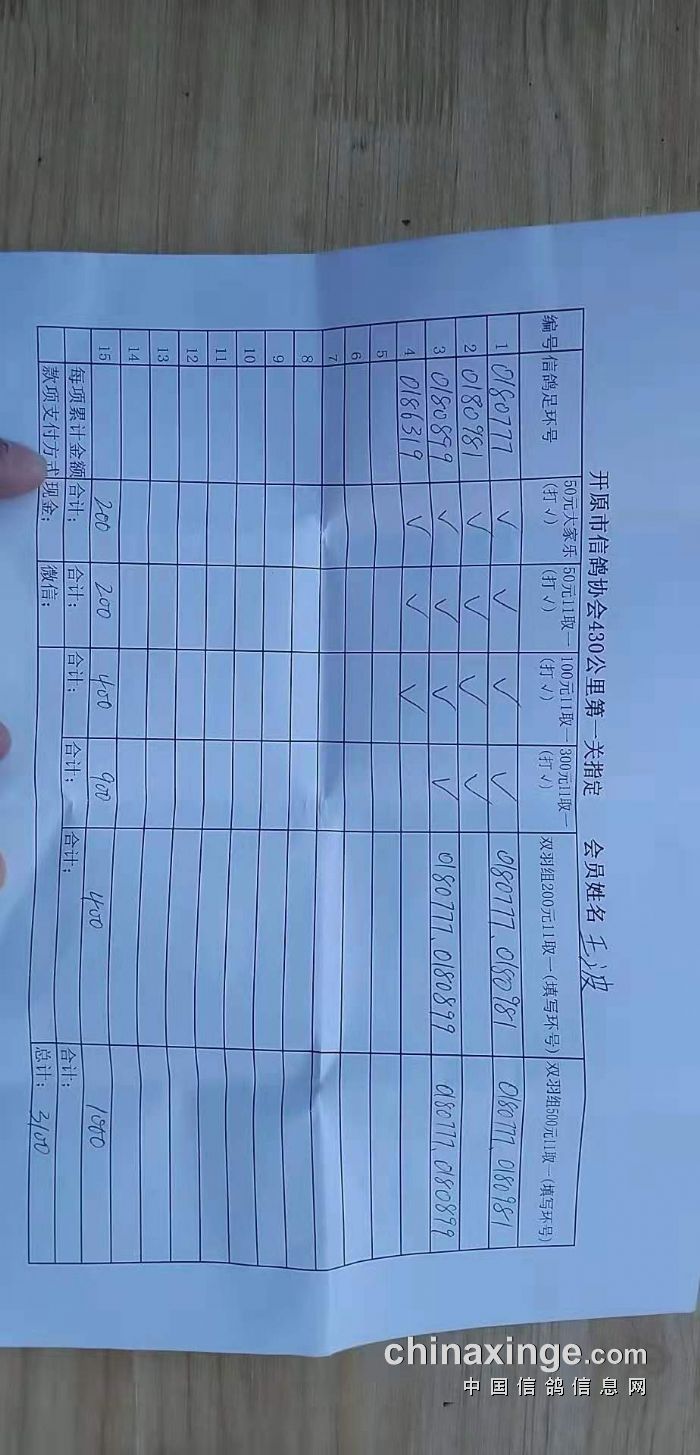 开原市信鸽协会430公里第一关指定 会员姓名 王波
编号 信鸽足环号 50元大家乐(打√) 50元11取一(打√) 100元11取一(打√) 300元11取一(打√) 双羽组200元11取一(填写环号) 双羽组500元11取一(填写环号)
1 0180777 √ √ √ √ 0180777、0180981 0180777、0180981
2 0180981 √ √ √ √
3 0180899 √ √ √ √ 0180777、0180899 0180777、0180899
4 0186319 √ √ √
5
6
7
8
9
10
11
12
13
14
15 200 200 400 900 400 1000
每项累计金额 合计: 合计: 合计: 合计: 合计: 合计:
款项支付方式 现金: 微信: 总计: 3100
chinaxinge.com
中国信鸽信息网